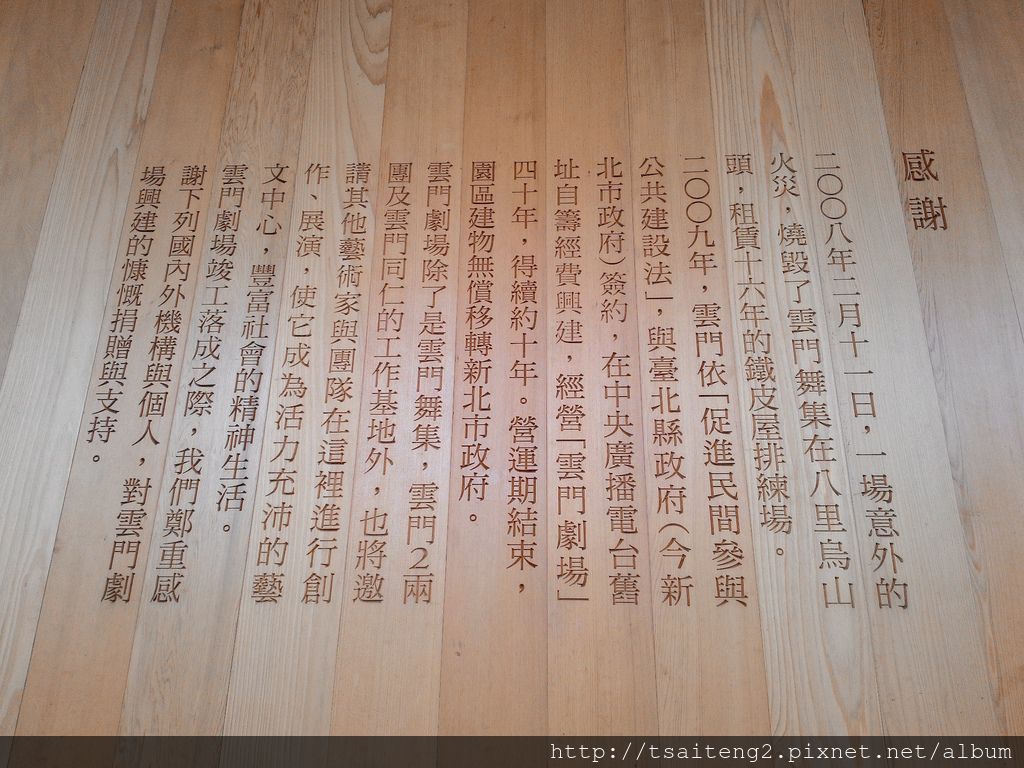 感謝
二〇〇八年二月十一日，一場意外的
火災，燒毀了雲門舞集在八里烏山
頭，租賃十六年的鐵皮屋排練場。
二〇〇九年，雲門依「促進民間參與
公共建設法」，與臺北縣政府（今新
北市政府）簽約，在中央廣播電台舊
址自籌經費興建，經營「雲門劇場」
四十年，得續約十年。營運期結束，
園區建物無償移轉新北市政府。
雲門劇場除了是雲門舞集，雲門2兩
團及雲門同仁的工作基地外，也將邀
請其他藝術家與團隊在這裡進行創
作、展演，使它成為活力充沛的藝
文中心，豐富社會的精神生活。
雲門劇場竣工落成之際，我們鄭重感
謝下列國內外機構與個人，對雲門劇
場興建的慷慨捐贈與支持。
http://tsaiteng2.pixnet.net/album